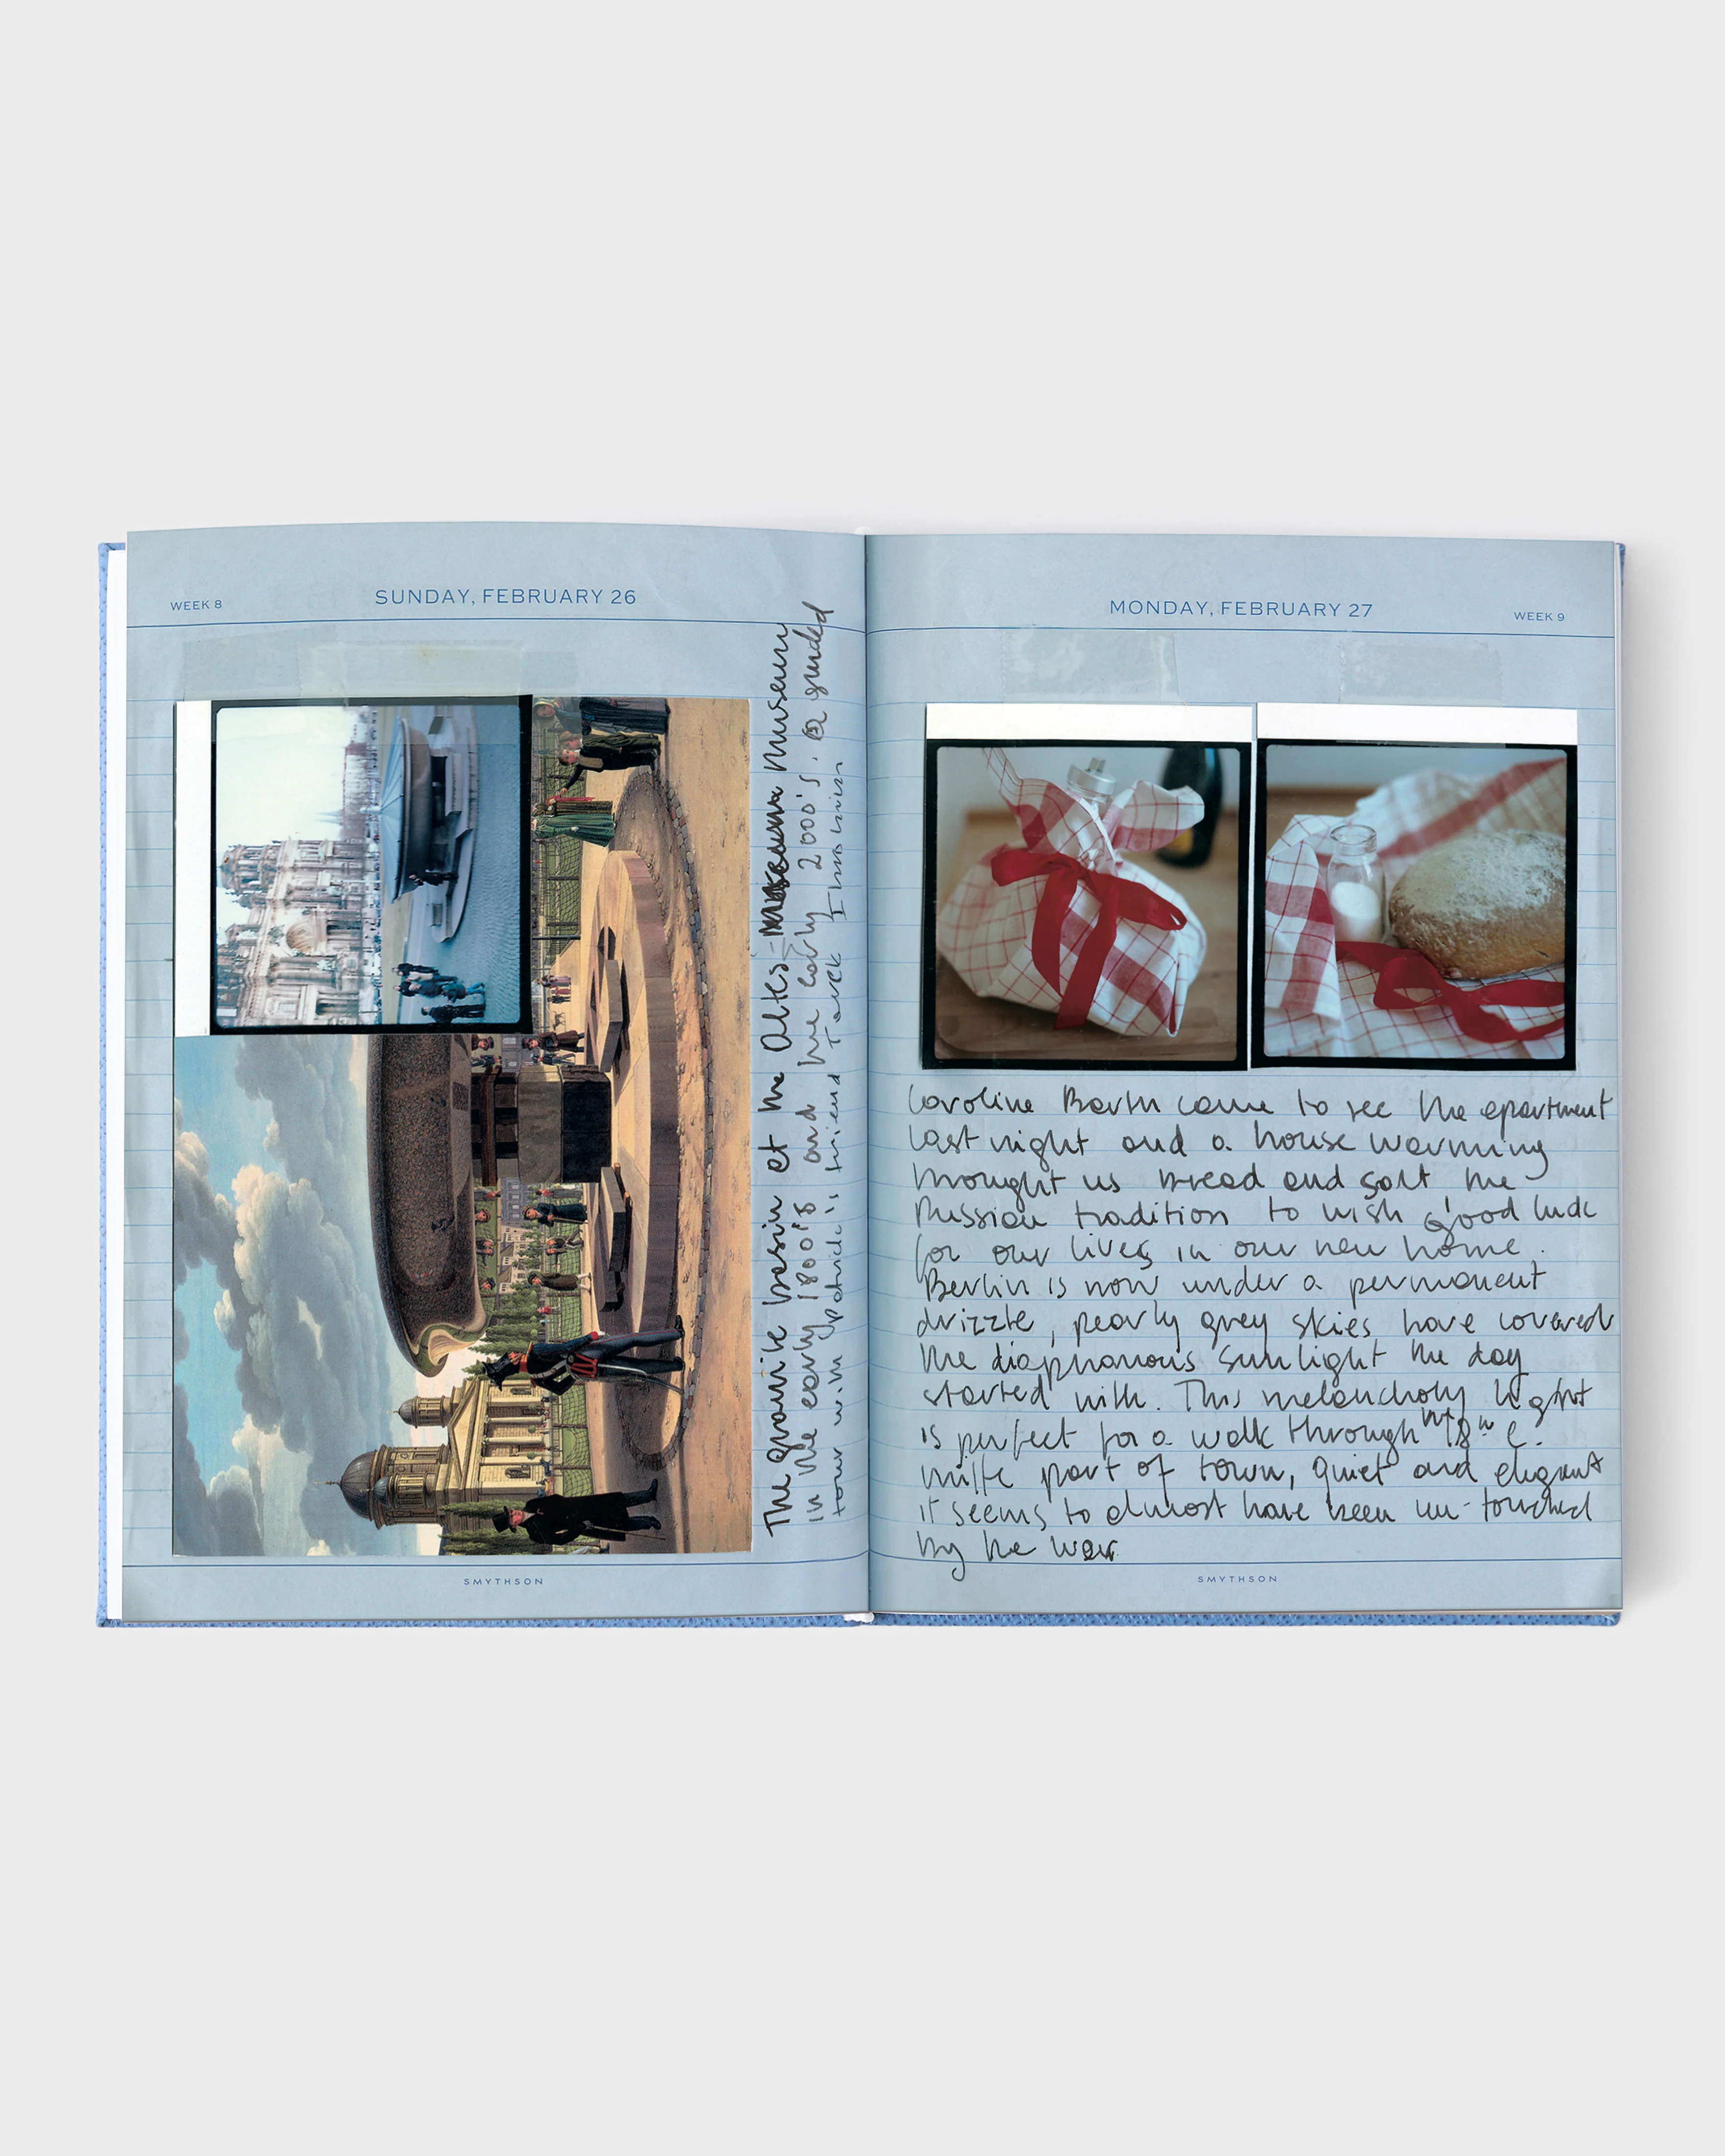 WEEK 8
SUNDAY, FEBRUARY 26
The granite basin at the Altes Museum
in the early 1800's and the early 2000's. a guided
tour with Patrick's friend Tarek
SMYTHSON
MONDAY, FEBRUARY 27
WEEK 9
Caroline Barth came to see the apartment
last night and a house warming
brought us bread and salt the
Russian tradition to wish good luck
for our lives in our new home.
Berlin is now under a permanent
drizzle, pearly grey skies have covered
the diaphanous sunlight the day
started with. This melancholy light
is perfect for a walk through the 18th C.
mitte part of town, quiet and elegant
it seems to almost have been un-touched
by the war
SMYTHSON